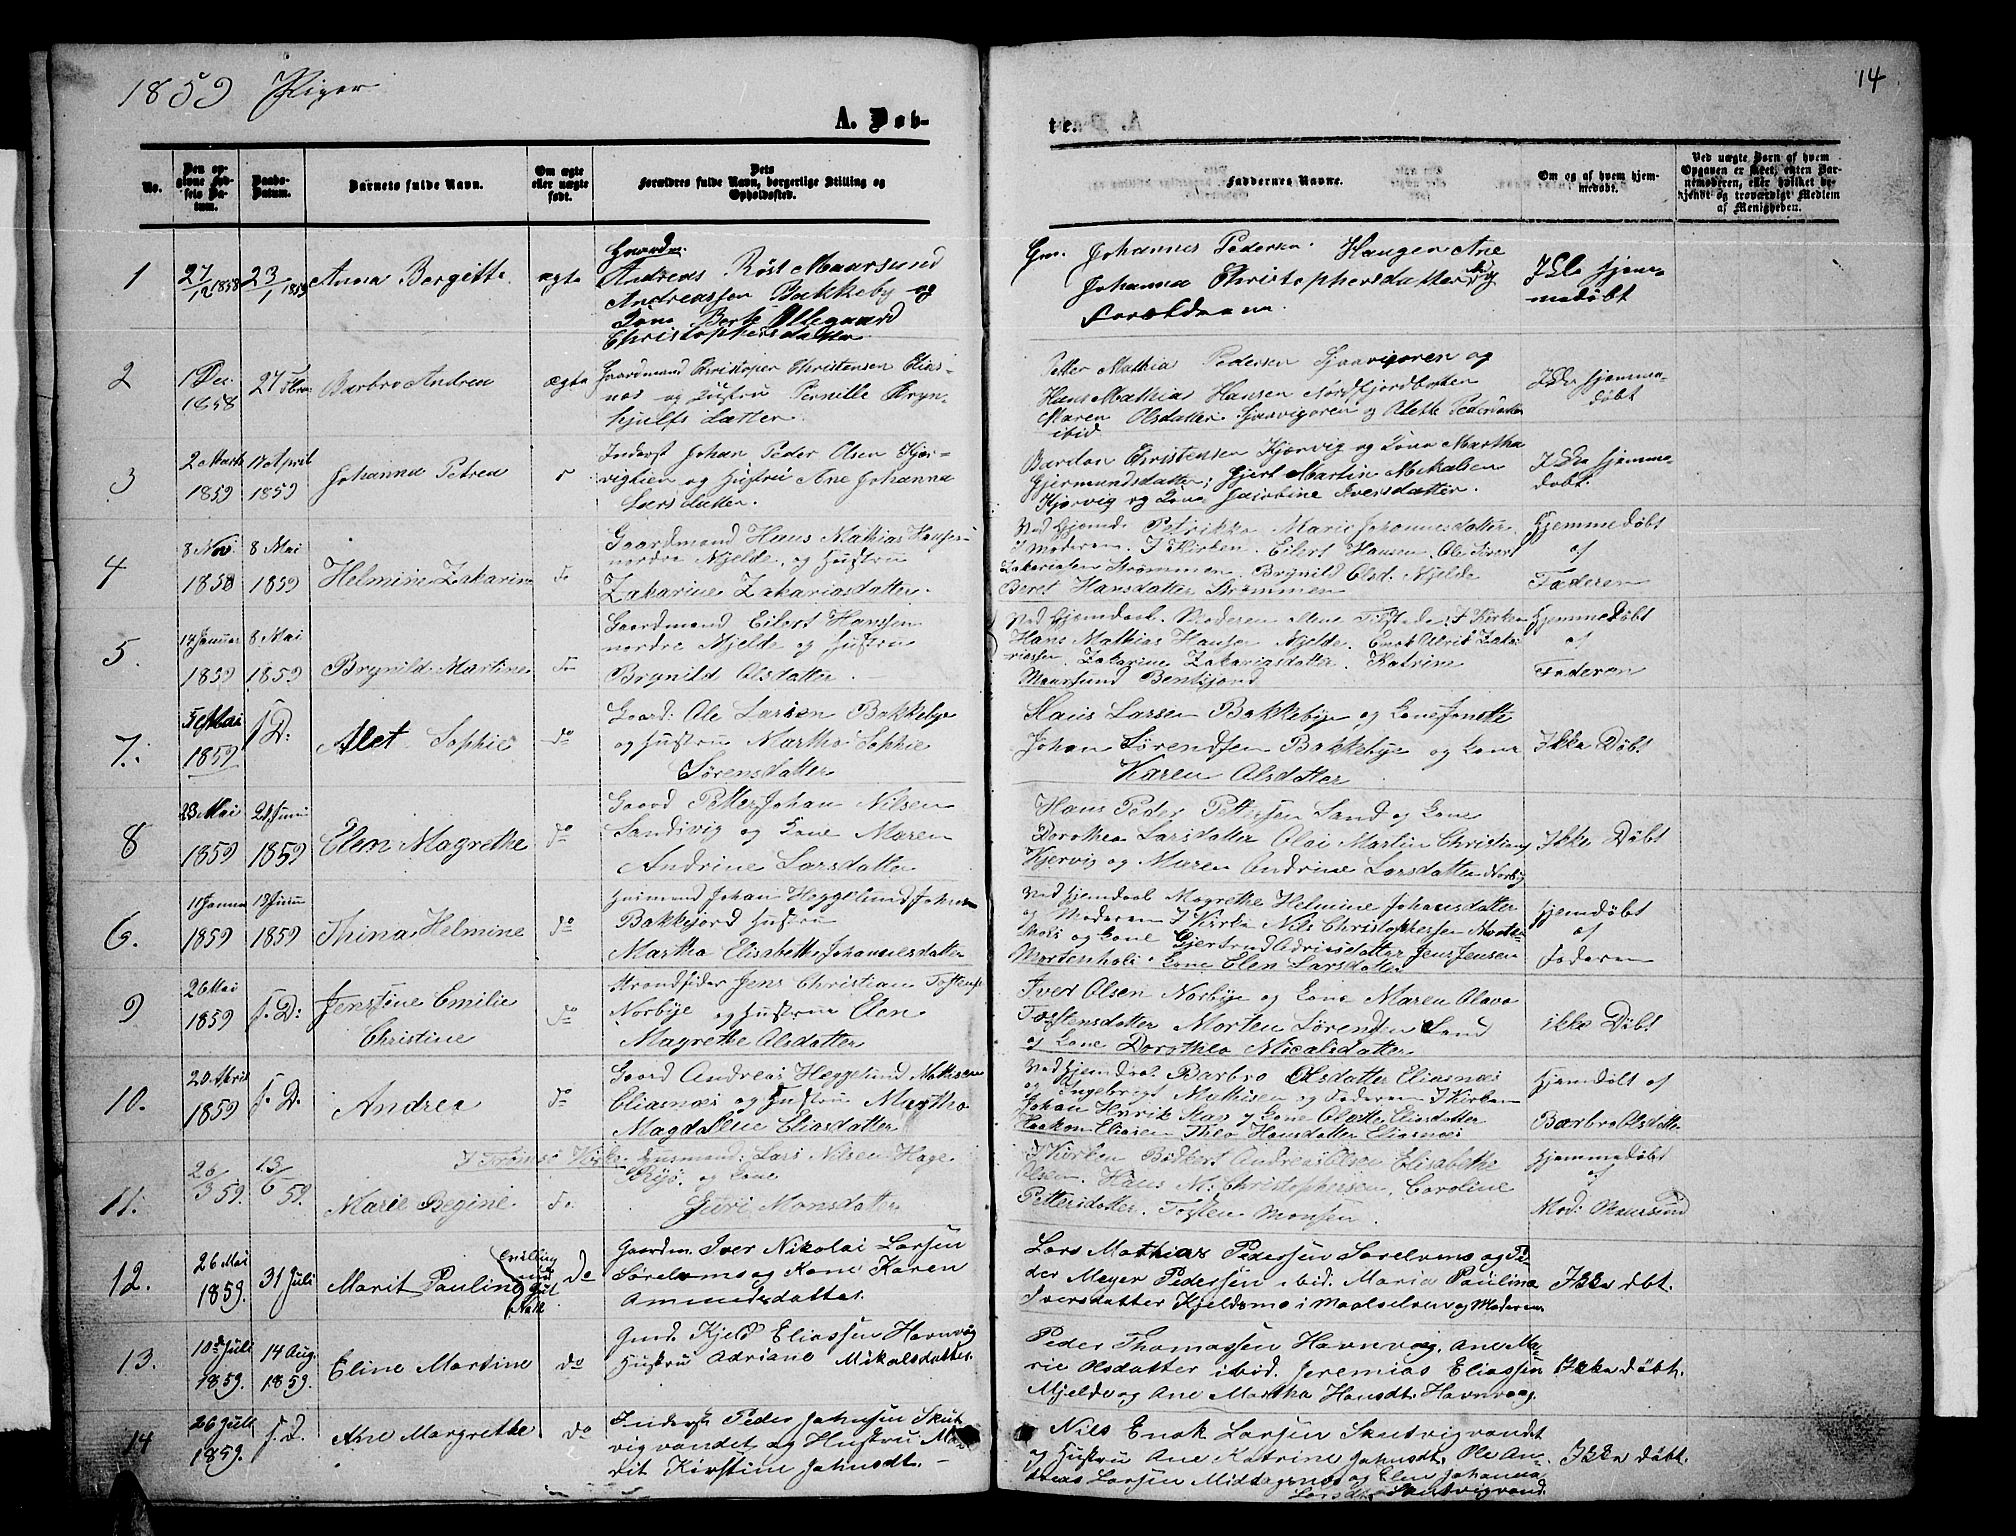 1859 Piger
14
A. Døb-
te.
No.
Den op-
givne Fød-
sels Da-
tum.
Daabs-
Datum.
Barnets fulde Navn.
Om ægte
eller uægte
født.
Dets
Forældres fulde Navn, borgerlige Stilling og
Opholdssted.
Faddernes Navne.
Om og af hvem hjem-
medøbt.
Ved uægte Børn af hvem
Opgaven er skeet, enten Bar-
nemoderen, eller hvilket be-
kjendt og troværdigt Medlem
af Menigheden.
1
27/12 1858
23/1 1859
Anna Bergitte
ægte
Gaardm.
Andreas Röst Maarsund
Andreassen Bakkeby og
Kone Berte Ollegaard
Christophersdatter
Gm. Johannes Pedersen Haugen Ane
Johanna Christophersdatter
Forældrene.
Ikke hjem-
medøbt
2
1 Dec.
1858
27 Febru
Barbro Andrea
ægte
Gaardmand Christopher Christensen Elias-
nes og Hustru Pernille Bryn-
hjulfs Datter.
Petter Mathias Pedersen og
Hans Mathias Hansen Nordfjordbotten
Maren Olsdatter og Alette Pedersdatter
ibid
Ikke hjemme-
døbt
3
2 Marts
1859
17 April
1859
Johanna Petrea
Inderst Johan Peder Olsen Kjær-
vigtien og Hustru Ane Johanna
Larsdatter.
Bardon Christensen Kjærvig og Kone Martha
Gjermundsdatter; Gjert Martin Mikalsen
Kjærvig og Kone Jacobine Iversdatter.
Ikke hjemme-
døbt.
4
8 Nov.
1858
8 Mai
1859
Helmine Zakarine
do
Gaardmand Hans Mathias Hansen
nordre Mjelde og Hustru
Zakarine Zakariasdatter.
Ved Hjemd. Petrikke Marie Johannesdatter
Moderen. I Kirken. Eilert Hansen, Ole Sivert
Zakariasen Strømmen. Brynild Olsd. Mjelde
Beret Hansdatter Strømmen
Hjemmedøbt
af
Faderen
5.
14 Januar
1859
8 Mai
1859
Brynild Martine
do
Gaardmand Eilert Hansen
nordre Mjelde og Hustru
Brynild Olsdatter
Ved Hjemdaab. Moderen alene Tilstede. I Kirken
Hans Mathias Hansen Mjelde. Enok Ulrik Zaka-
riassen. Zakarine Zakariasdatter. Katrine
Maarsund Bentsjord
Hjemmedøbt
af
Faderen
7.
Mai
1859
s. D:
Alet Sophie
do
Gaard: Ole Larsen Bakkebye
og Hustru Martha Sophie
Sørensdatter
Hans Larsen Bakkebye og Kone Janette
Johan Sørendsen Bakkebye og Kone
Karen Olsdatter
Ikke Døbt
8
23 Mai
1859
21 Juni
1859
Elen Magrethe
do
Gaard Petter Johan Nilsen
Sandvig og Kone Maren
Andrine Larsdatter
Hans Peder Pettersen Sand og Kone
Dorothea Larsdatter Olai Martin Christians
Kjervig og Maren Andrine Larsdatter
Ikke Døbt
6.
11 Janua
1859
13 Juni
1859
Thina Helmine
do
Husmand Johan Heggelund Johnsen
Bakkejord Hustru
Martha Elisabeth Johannesdatter
Ved Hjemdaab Magrethe Helmine Johansdatter
og Moderen I Kirken Nils Christophersen
og Kone Gjertrud Adriansdatter Jens Jensen
Mortenhols Kone Elen Larsdatter
Hjemdøbt
af
Faderen
9
26 Mai
1859
s. D:
Jensine Emilie
Christine
do
Strandsider Jens Christian Tostens
Norbye og Hustru Elen
Magrethe Olsdatter
Iver Olsen Norbye og Kone Maren Olava
Tostensdatter Morten Sørensen Sand
og Kone Dorothea Micalsdatter
ikke Døbt
10.
20 April
1859
s. D.
Andrea
do
Gaard Andreas Heggelund Mathisen
Eliasnæs og Hustru Martha
Magdalene Eliasdatter
Ved Hjemdaab Barbro Olsdatter Eliasnæs
og Ingebrigt Mathisen og Faderen I Kirken
Johan Henrik Maas og Kone Olette Eliasdatter
Haakon Eliasen Thea Hansdatter Eliasnæs
Hjemdøbt af
Barbro Olsdatter
11.
26/3 59.
13/6 59.
I Tromsø Kirke
Marie Regine
do
Husmand: Lars Nilsen Hage
og Kone
Guri Monsdatter
I Kirken Bødkert Andreas Olsen Elisabethe
Olsen. Hans M. Christophersen, Caroline
Pettersdatter. Tosten Monsen.
Hjemmedøbt
af
Mod: Maursund
12.
26 Mai
1859.
31 Juli
Marit Pauline
do
Gaardm. Iver Nikolai Larsen
Sørelvmo og Kone Karen
Ammundsdatter
Lars Mathias Pedersen Sørelvmo og Pe-
der Meyer Pedersen ibid. Maria Paulina
Iversdatter Kjeldsmo i Maalselven og Moderen
Ikke døbt.
13.
10de Juli
1859.
14 Aug.
1859.
Eline Martine
do
Gmd. Kjeld Eliassen Havnvaag
Hustru Adriane Mikalsdatter.
Peder Thomassen Havnvaag, Ane Ma-
rie Olsdatter ibid. Jeremias Eliassen
Mjelde og Ane Martha Hansdt. Havnvaag.
Ikke døbt.
14
26 Juli
1859.
s. D.
Ane Margrethe
do
Inderst Peder Johnsen Skut
vigvandet og Hustru Ma-
rit Kirstine Johnsdt. –
Nils Enok Larsen Skutvigvandet
og Hustru Ane Katrine Johnsdt. Ole An-
dreas Larsen Middagsnæs og Elen Johanna
Larsdt. Skutvigvand.
Ikke døbt.